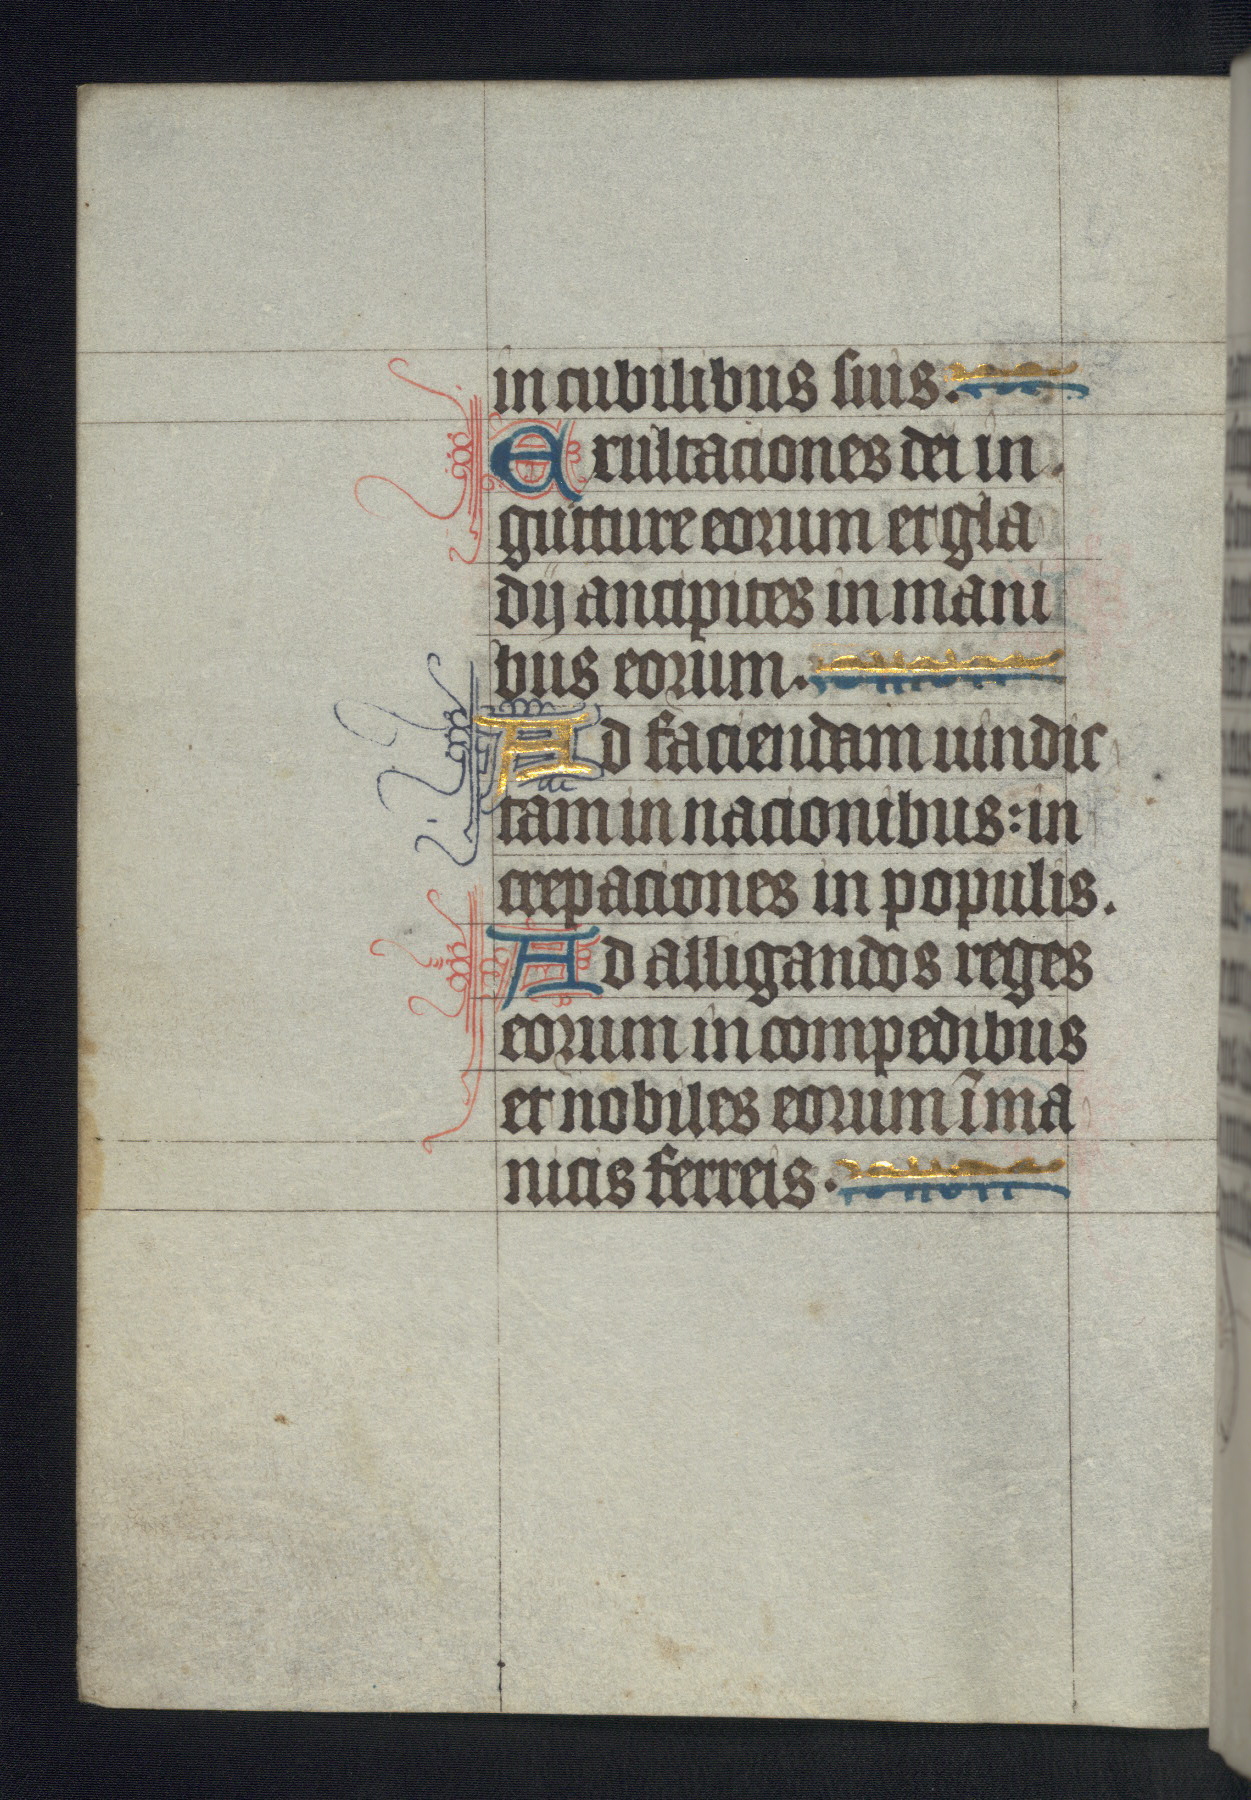 in cubilibus suis.
Exultaciones dei in
gutture eorum et gla
dij ancipites in mani
bus eorum.
Ad faciendam uindic
tam in nacionibus: in
crepaciones in populis.
Ad alligandos reges
eorum in compedibus
et nobiles eorum ī ma
nicis ferreis.